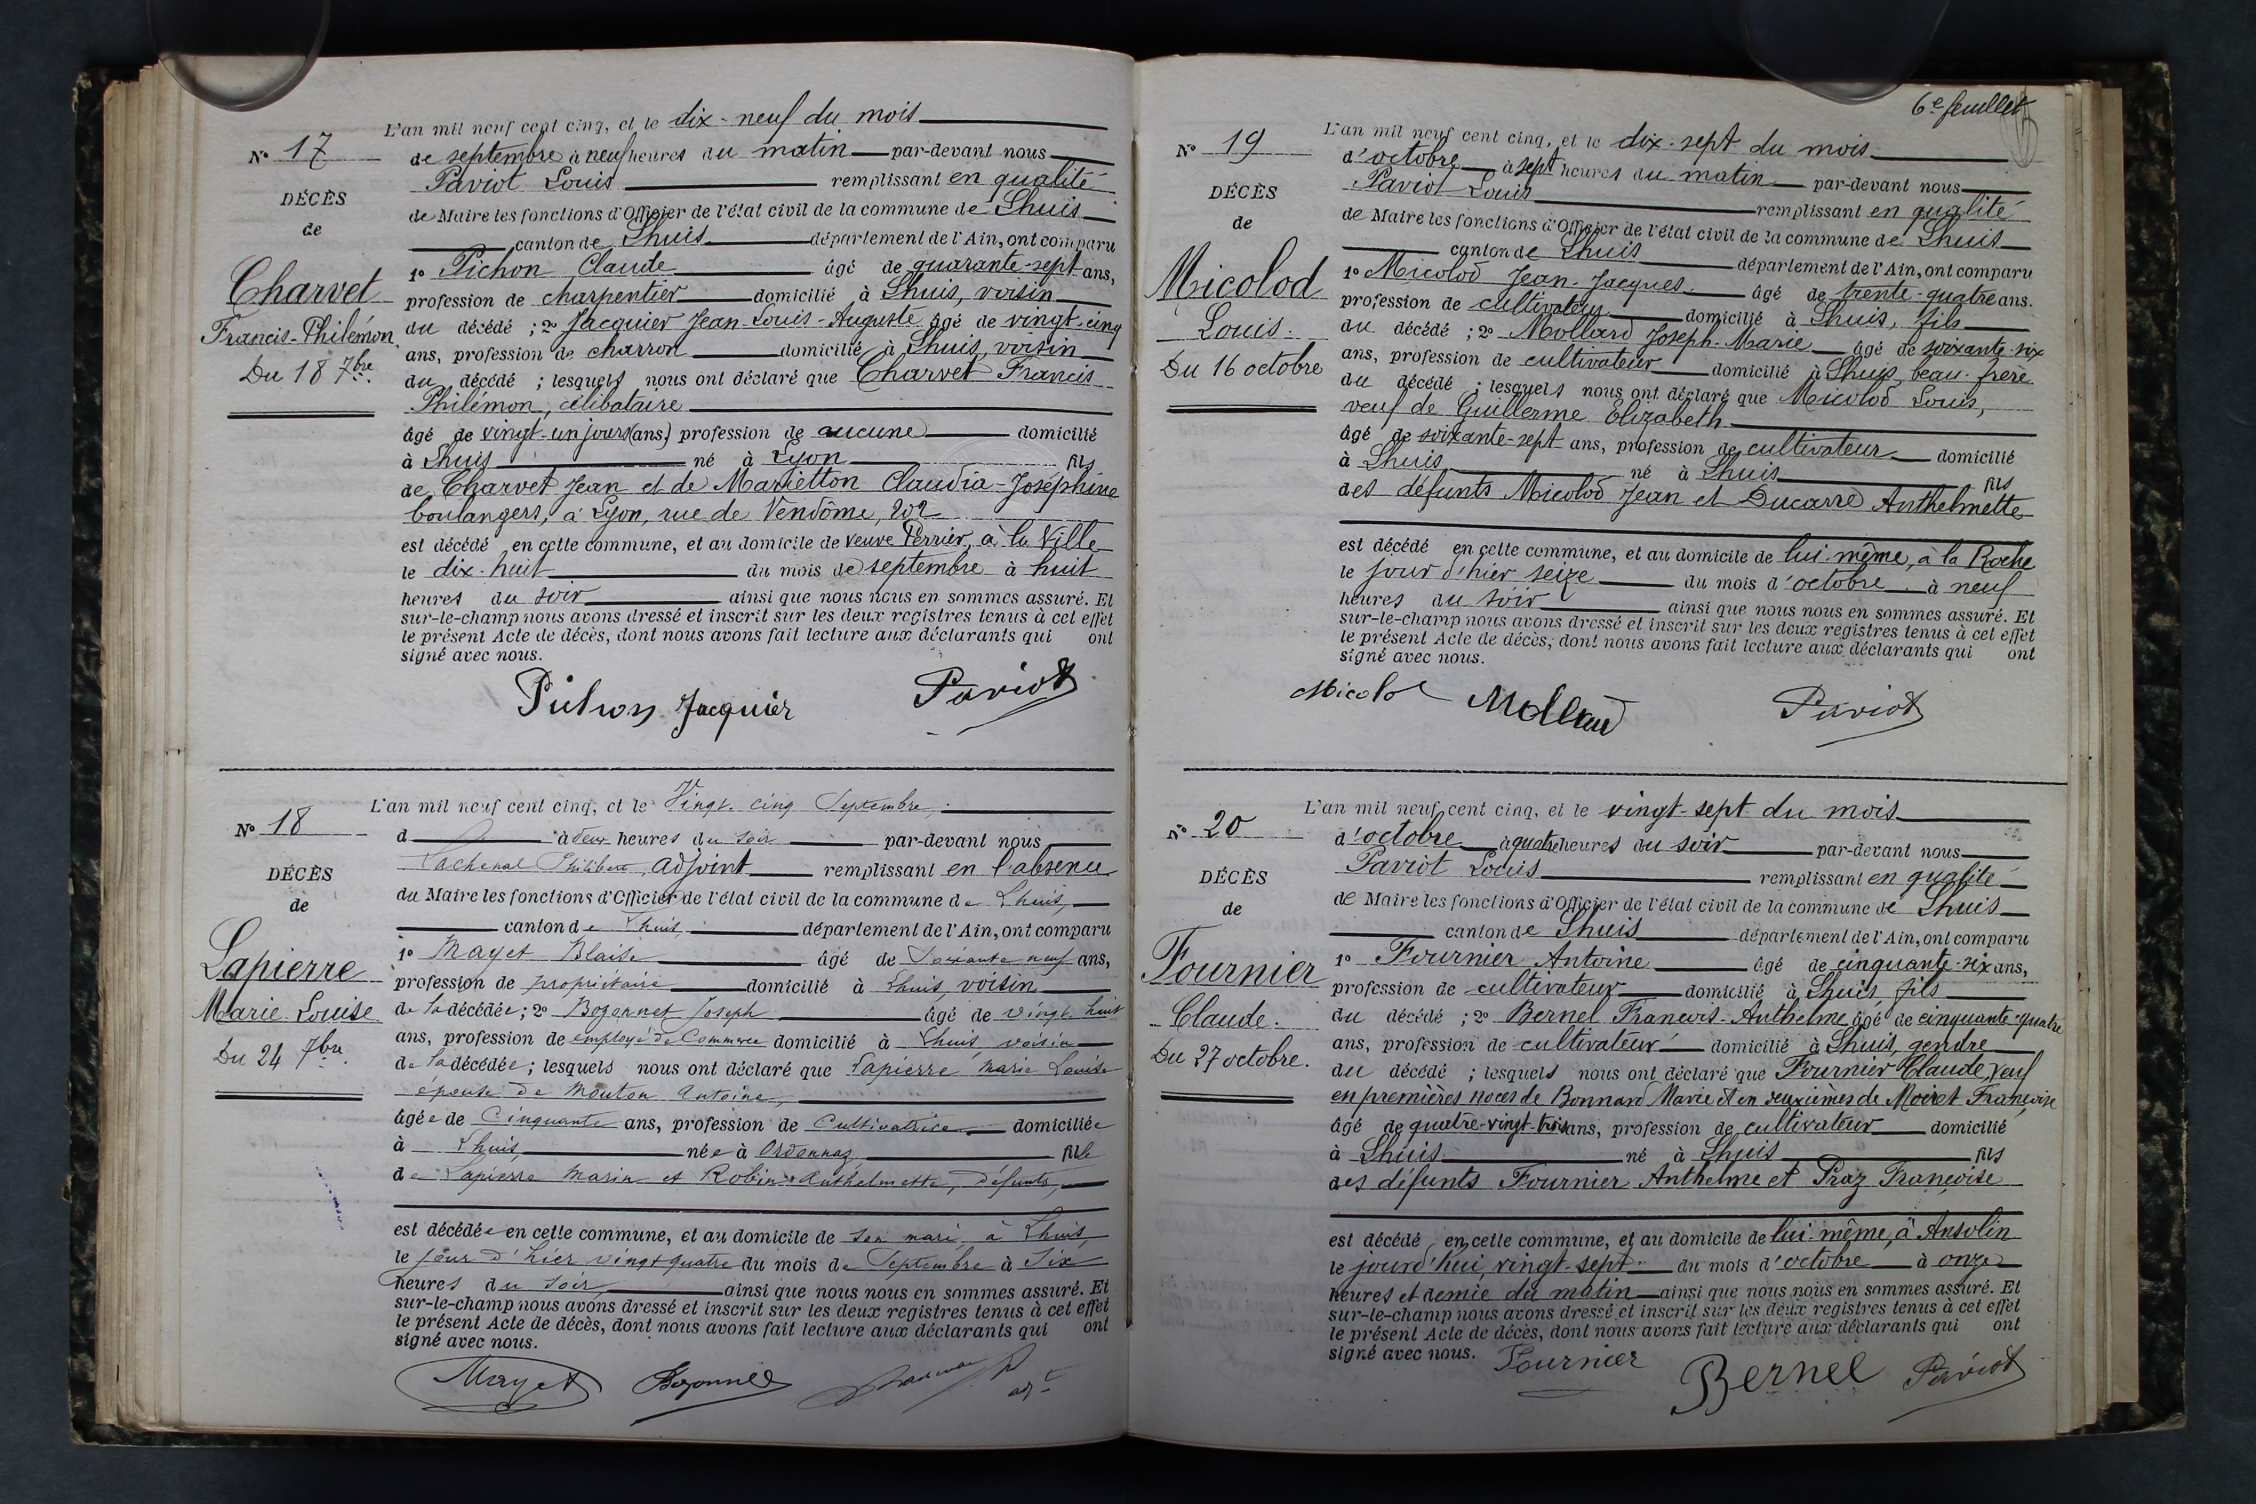 L'an mil neuf cent cinq, et le dix-neuf du mois
N° 17
de septembre à neuf heures du matin par-devant nous
Paviot Louis remplissant en qualité
DÉCÈS
de Maire les fonctions d'Officier de l'état civil de la commune de Lhuis
de
canton de Lhuis département de l'Ain, ont comparu
1° Pichon Claude âgé de quarante-sept ans,
Charvet
profession de charpentier domicilié à Lhuis, voisin
Francis-Philémon
du décédé ; 2° Jacquier Jean-Louis-Auguste âgé de vingt-cinq
ans, profession de charron domicilié à Lhuis, voisin
Du 18 7bre
du décédé ; lesquels nous ont déclaré que Charvet Francis
Philémon, célibataire
âgé de vingt-un jours (ans) profession de aucune domicilié
à Lhuis né à Lyon fils
de Charvet Jean et de Marietton Claudia-Joséphine
boulangers, à Lyon, rue de Vendôme, 202
est décédé en cette commune, et au domicile de veuve Perrier, à la Ville
le dix-huit du mois de septembre à huit
heures du soir ainsi que nous nous en sommes assuré. Et
sur-le-champ nous avons dressé et inscrit sur les deux registres tenus à cet effet
le présent Acte de décès, dont nous avons fait lecture aux déclarants qui ont
signé avec nous.
Pichon Jacquier Paviot
L'an mil neuf cent cinq, et le Vingt-cinq Septembre,
N° 18
d à deux heures du soir par-devant nous
Lachenal Philibert, adjoint remplissant en l'absence
DÉCÈS
du Maire les fonctions d'Officier de l'état civil de la commune de Lhuis,
de
canton de Lhuis, département de l'Ain, ont comparu
1° Mayet Blaise âgé de Soixante neuf ans,
Lapierre
profession de propriétaire domicilié à Lhuis, voisin
Marie-Louise
de la décédée ; 2° Bozonnet Joseph âgé de vingt huit
ans, profession de employé de Commerce domicilié à Lhuis, voisin
Du 24 7bre
de la décédée ; lesquels nous ont déclaré que Lapierre Marie Louise
épouse de Mouton Antoine,
âgée de Cinquante ans, profession de Cultivatrice domiciliée
à Lhuis, née à Ordonnaz fille
de Lapierre Marin et Robin Anthelmette, défunts,
est décédée en cette commune, et au domicile de son mari, à Lhuis,
le jour d'hier vingt quatre du mois de Septembre à Six
heures du soir, ainsi que nous nous en sommes assuré. Et
sur-le-champ nous avons dressé et inscrit sur les deux registres tenus à cet effet
le présent Acte de décès, dont nous avons fait lecture aux déclarants qui ont
signé avec nous.
Mayet Bozonnet
6e feuillet
L'an mil neuf cent cinq, et le dix-sept du mois
N° 19
d'octobre à sept heures du matin par-devant nous
Paviot Louis remplissant en qualité
DÉCÈS
de Maire les fonctions d'Officier de l'état civil de la commune de Lhuis
de
canton de Lhuis département de l'Ain, ont comparu
1° Micolod Jean-Jacques âgé de trente-quatre ans.
Micolod
profession de cultivateur domicilié à Lhuis, fils
Louis.
du décédé ; 2° Mollard Joseph-Marie âgé de soixante-six
ans, profession de cultivateur domicilié à Lhuis, beau-frère
Du 16 octobre
du décédé ; lesquels nous ont déclaré que Micolod Louis,
veuf de Guillerme Elizabeth
âgé de soixante-sept ans, profession de cultivateur domicilié
à Lhuis né à Lhuis fils
des défunts Micolod Jean et Ducarre Anthelmette
est décédé en cette commune, et au domicile de lui-même, à la Roche
le jour d'hier seize du mois d'octobre à neuf
heures du soir ainsi que nous nous en sommes assuré. Et
sur-le-champ nous avons dressé et inscrit sur les deux registres tenus à cet effet
le présent Acte de décès, dont nous avons fait lecture aux déclarants qui ont
signé avec nous.
Micolod Mollard Paviot
L'an mil neuf cent cinq, et le vingt-sept du mois
N° 20
d'octobre à quatre heures du soir par-devant nous
Paviot Louis remplissant en qualité
DÉCÈS
de Maire les fonctions d'Officier de l'état civil de la commune de Lhuis
de
canton de Lhuis département de l'Ain, ont comparu
1° Fournier Antoine âgé de cinquante-six ans,
Fournier
profession de cultivateur domicilié à Lhuis, fils
Claude.
du décédé ; 2° Bernel Francois-Anthelme âgé de cinquante-quatre
ans, profession de cultivateur domicilié à Lhuis, gendre
Du 27 octobre.
du décédé ; lesquels nous ont déclaré que Fournier Claude, veuf
en premières noces de Bonnard Marie et en deuxièmes de Moiret Françoise
âgé de quatre-vingt-trois ans, profession de cultivateur domicilié
à Lhuis né à Lhuis fils
des défunts Fournier Anthelme et Praz Françoise
est décédé en cette commune, et au domicile de lui-même, à Ansolin
le jourd'hui, vingt-sept du mois d'octobre à onze
heures et demie du matin ainsi que nous nous en sommes assuré. Et
sur-le-champ nous avons dressé et inscrit sur les deux registres tenus à cet effet
le présent Acte de décès, dont nous avons fait lecture aux déclarants qui ont
signé avec nous.
Fournier Bernel Paviot